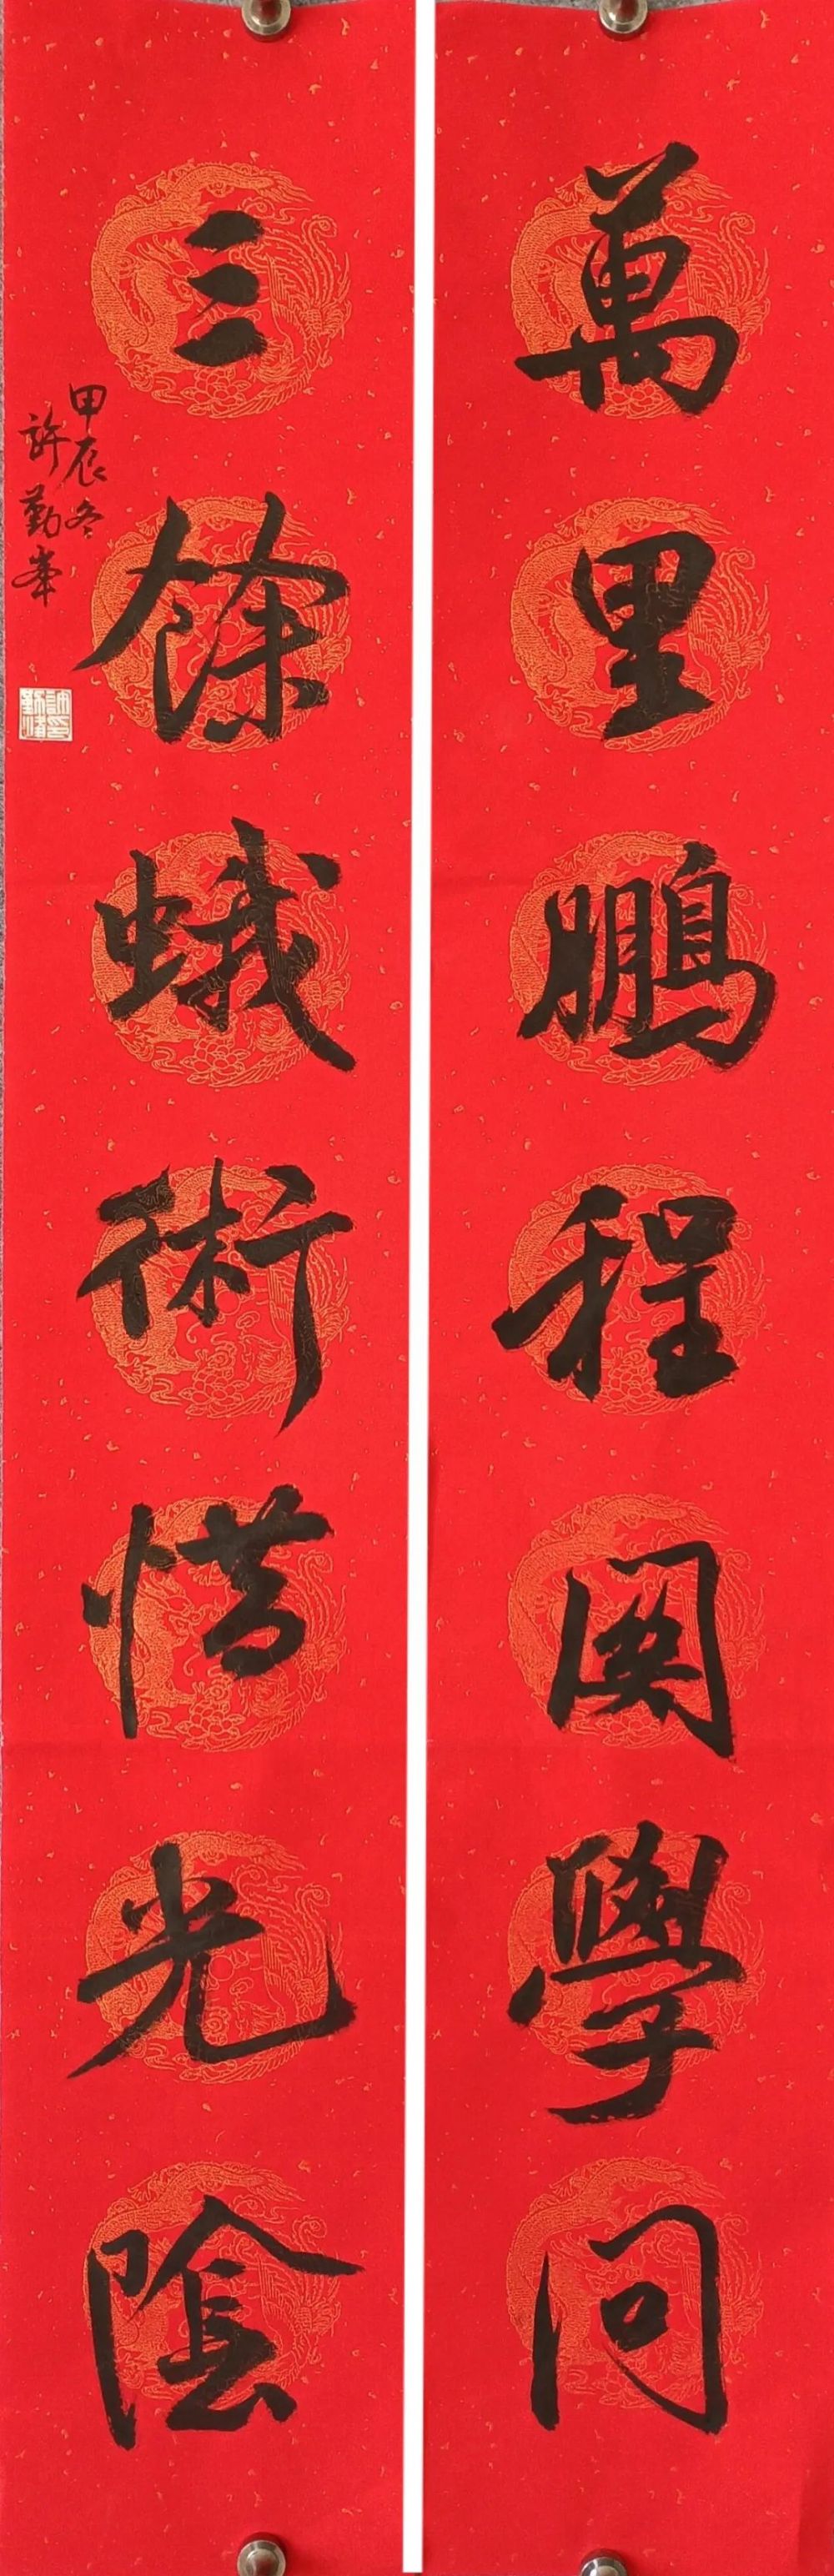 萬里鵬程關學問
三餘蛾術惜光陰
甲辰冬
許勤峯